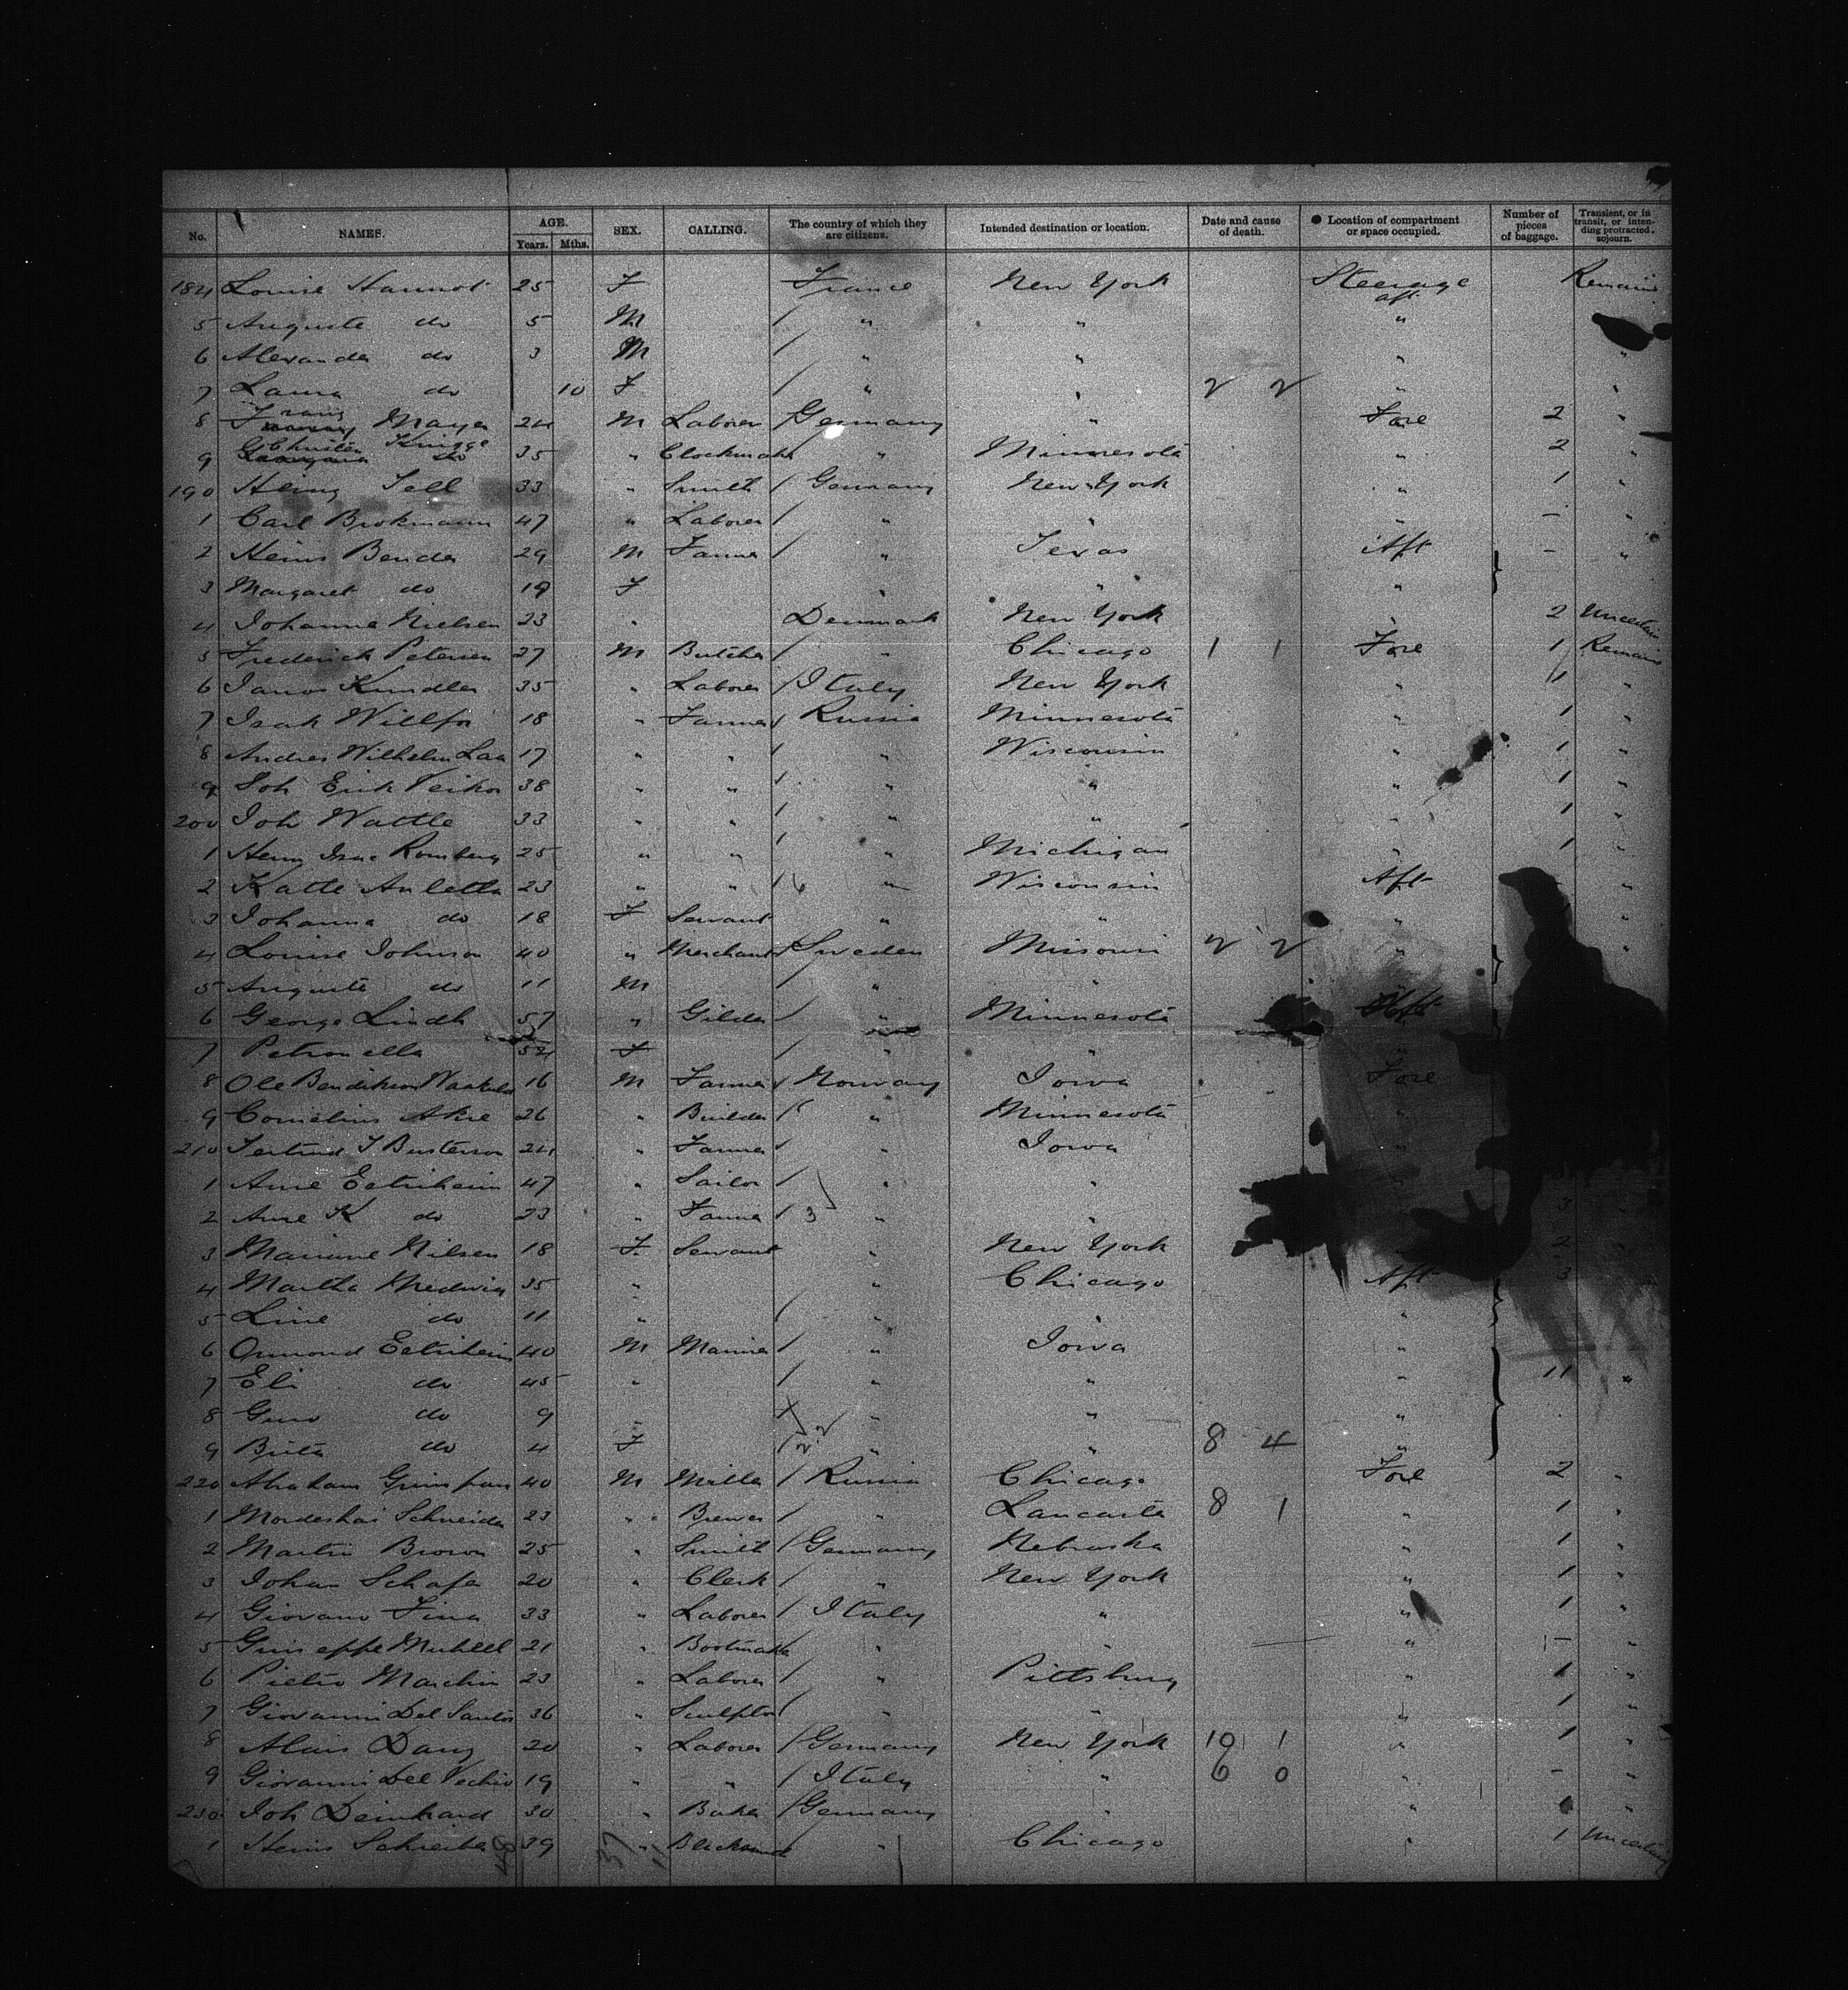 No. NAMES. AGE. Years. Mths. SEX. CALLING. The country of which they are citizens. Intended destination or location. Date and cause of death. Location of compartment or space occupied. Number of pieces of baggage. Transient, or in transit, or intending protracted sojourn.
184 Louise Hannot 25 F France New York Steerage aft Remain
5 Auguste do 5 M / " " "
6 Alexander do 3 M / " " " "
7 Laura do 10 F / " " 2 2 " "
8 Franz Mayer 24 M Laborer / Germany " Fore 2 "
9 Christen Knigge 35 " Clockmaker " Minnesota " 2 "
190 Henry Sell 33 " Smith / Germany New York " 1 "
1 Carl Brokmann 47 " Laborer / " " " – "
2 Heins Bender 29 M Farmer / " Texas Aft – "
3 Margaret do 19 F " " "
4 Johanna Nielsen 23 " Denmark New York " 2 Uncertain
5 Frederick Petersen 27 M Butcher / " Chicago 1 1 Fore 1 Remain
6 Janos Kundler 35 " Laborer / Italy New York " 1 "
7 Isak Willfor 18 " Farmer / Russia Minnesota " 1 "
8 Andres Wilhelm 17 " " / " Wisconsin " 1 "
9 Joh Erik 38 " " / " " " 1 "
200 Joh Wattle 33 " " / " " " 1 "
1 Henry Isac Romberg 25 " " / " Michigan " 1 "
2 Kalle 23 " " / 6 " Wisconsin Aft "
3 Johanna do 18 F Servant " " " "
4 Louise Johnson 40 " Merchant / Sweden Missouri 2 2 " "
5 Auguste do 11 M / " " "
6 George Lindh 57 " Gilder / " Minnesota Aft
7 Petronella 52 F / " " "
8 Ole Bendikson 16 M Farmer / Norway Iowa Fore
9 Cornelius Akre 26 " Builder / " Minnesota "
210 24 " Farmer / " Iowa "
1 Arne Eetrheim 47 " Sailor / " "
2 Arne K do 23 " Farmer / 3 " " 3
3 Mariane Nilsen 18 F. Servant " New York 2
4 Martha 35 " " Chicago Aft 3
5 Line do 11 " / " " "
6 Ormond Eetrheim 40 M Mariner / " Iowa "
7 Eli do 45 " / " " " 11 "
8 do 9 " " " "
9 Brita do 4 F / 2 2 " " 8 4 "
220 Abraham Grinspan 40 M Miller / Russia Chicago Fore 2 "
1 Mordeshai Schneider 23 " Brewer / " Lancaster 8 1 " 1 "
2 Martin Brown 25 " Smith / Germany Nebraska " 1 "
3 Johan Schafer 20 " Clerk / " New York " 1 "
4 Giovano Fina 33 " Laborer / Italy " " 1 "
5 Guiseppe 21 " Bootmaker / " " " "
6 Pietro Marchin 23 " Laborer / " Pittsburg " 1 "
7 Giovanni Del Santos 36 " Sculptor / " " " 1 "
8 Alais Dang 20 " Laborer / Germany New York 10 1 " 1 "
9 Giovanni Del Vechio 19 " " / Italy " 6 0 " – "
230 Joh Deinhard 30 " Baker / Germany " " "
1 Heins Schreiber 39 " Blacksmith / " Chicago " 1 Uncertain
48 37 11